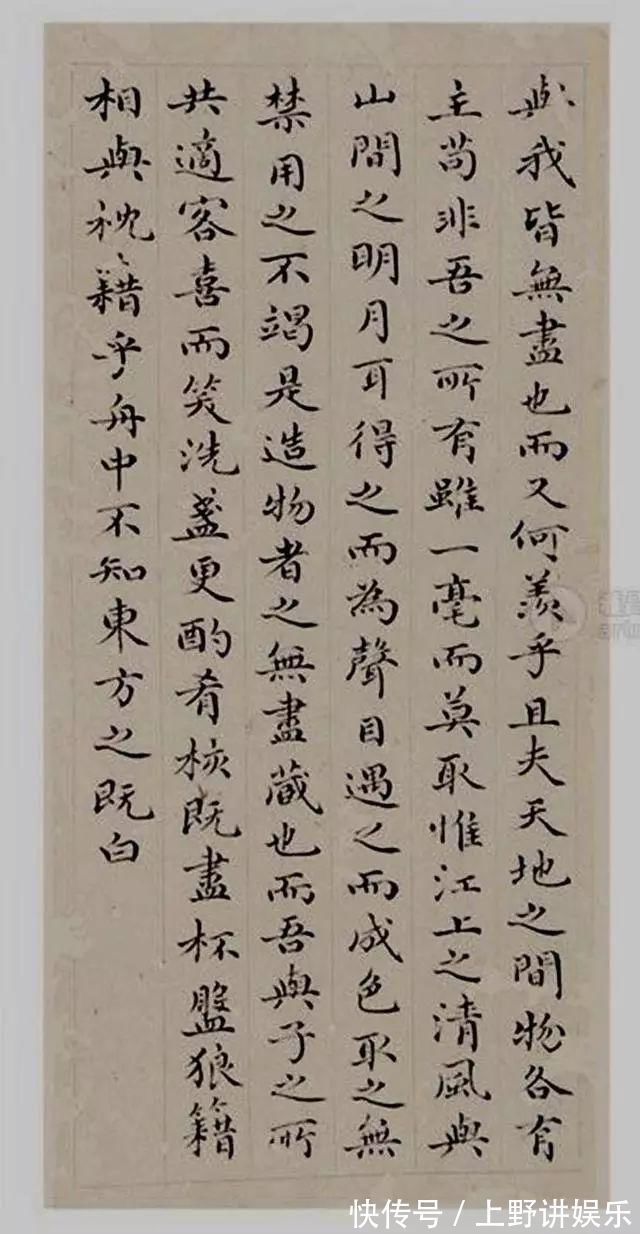 與我皆無盡也而又何羨乎且夫天地之間物各有
主苟非吾之所有雖一毫而莫取惟江上之清風與
山間之明月耳得之而為聲目遇之而成色取之無
禁用之不竭是造物者之無盡蔵也而吾與子之所
共適客喜而笑洗盞更酌肴核既盡杯盤狼籍
相與枕籍乎舟中不知東方之既白
快传号 / 上野讲娱乐